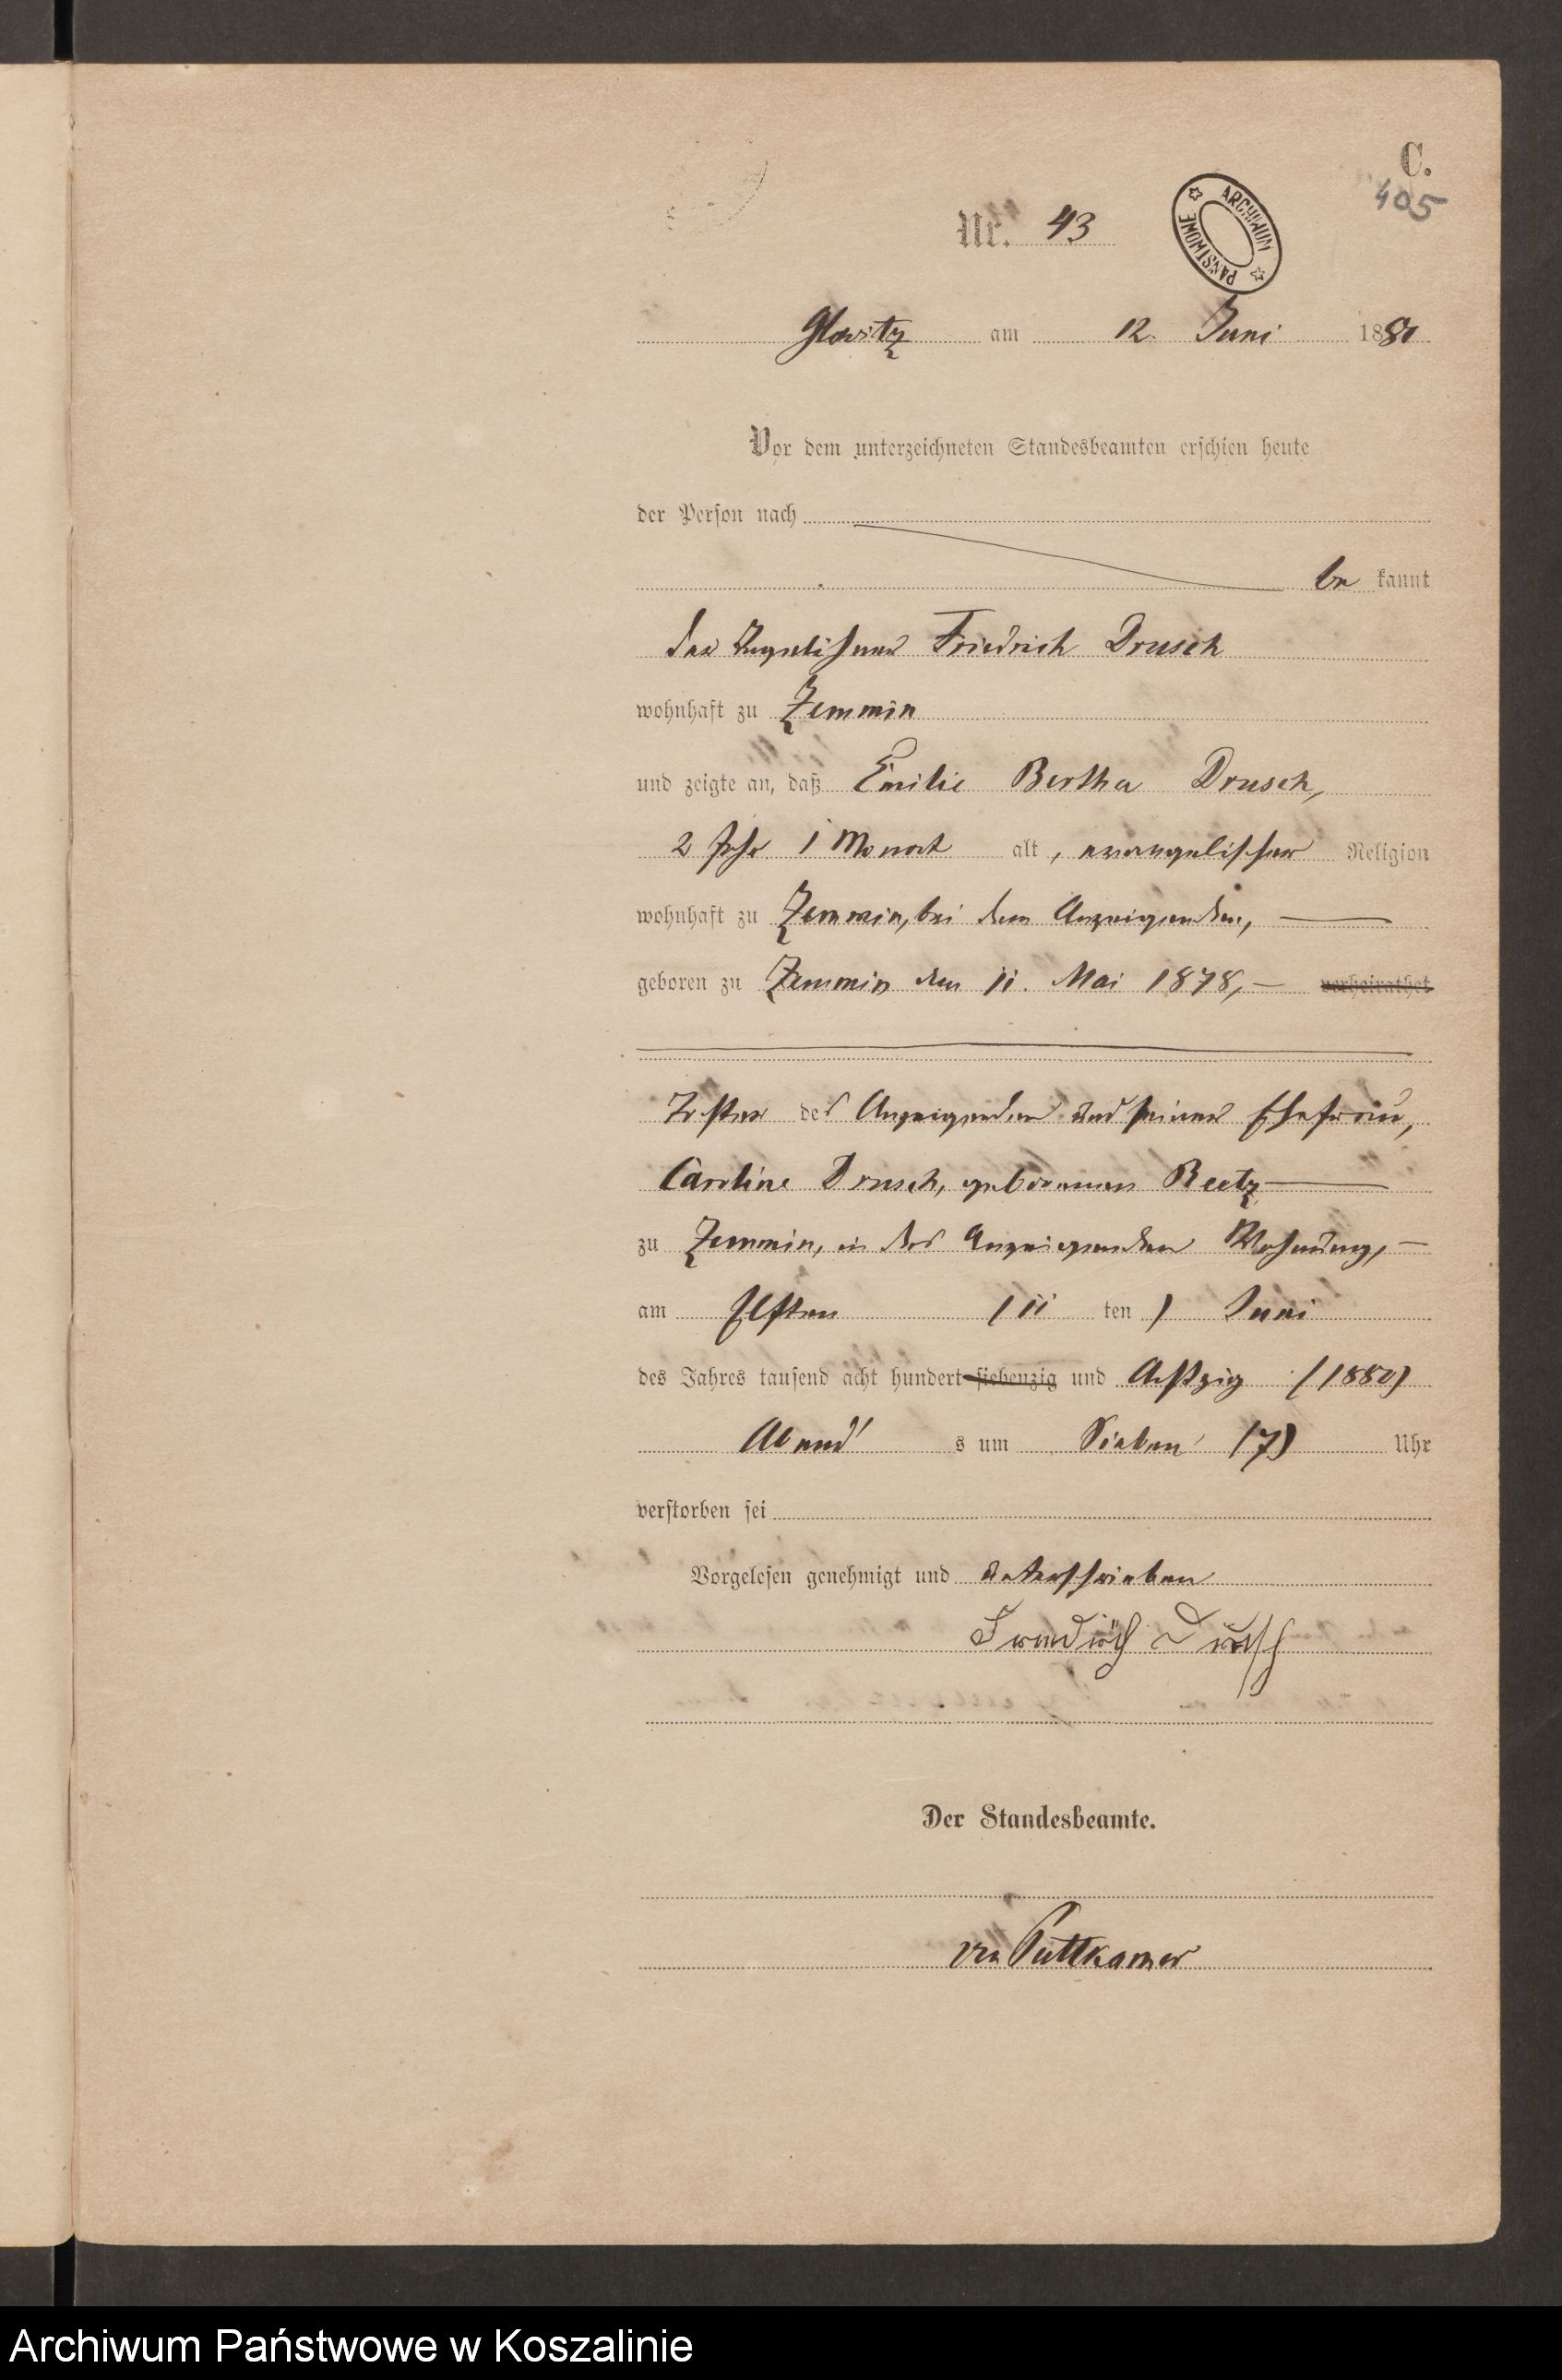 C.
405
Nr. 43
ARCHIWUM PAŃSTWOWE
Glowitz am 12. Juni 1880
Vor dem unterzeichneten Standesbeamten erschien heute
der Person nach
be kannt
der Tagelöhner Friedrich Drusch
wohnhaft zu Zemmin
und zeigte an, daß Emilie Bertha Drusch,
2 Jahr 1 Monat alt, evangelischer Religion
wohnhaft zu Zemmin, bei dem Anzeigenden,
geboren zu Zemmin den 11. Mai 1878, verheirathet
Tochter des Anzeigenden und seiner Ehefrau,
Caroline Drusch, geborenen Reetz
zu Zemmin, in des Anzeigenden Wohnung,
am Elften (11 ten) Juni
des Jahres tausend acht hundert siebenzig und Achtzig (1880)
Abend s um Sieben (7) Uhr
verstorben sei
Vorgelesen genehmigt und unterschrieben
Friedrich Drusch
Der Standesbeamte.
von Puttkamer
Archiwum Państwowe w Koszalinie